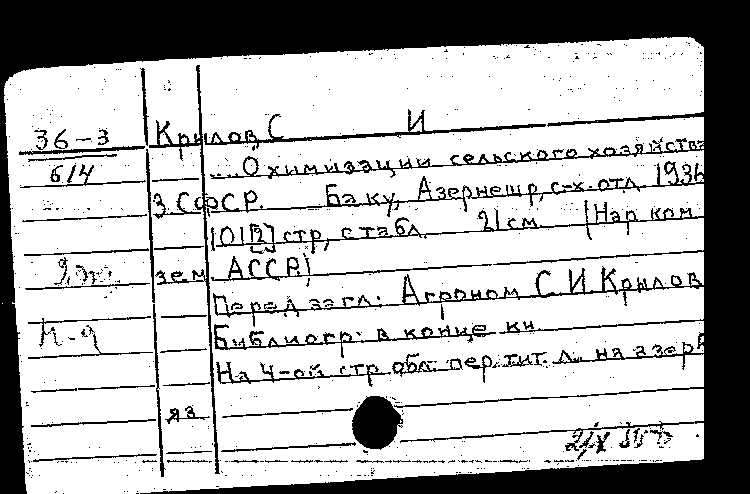 36-3 Крылов С И
614 ... О химизации сельского хозяйства
З.СФСР. Баку, Азернешр, с-х. отд. 1936
101[2] стр, с табл. 21 см (Нар ком
зем. АССР)
Перед загл: Агроном С. И. Крылов
Библиогр: в конце кн.
На 4-ой стр обл: пер. тит. л. на азерб
яз